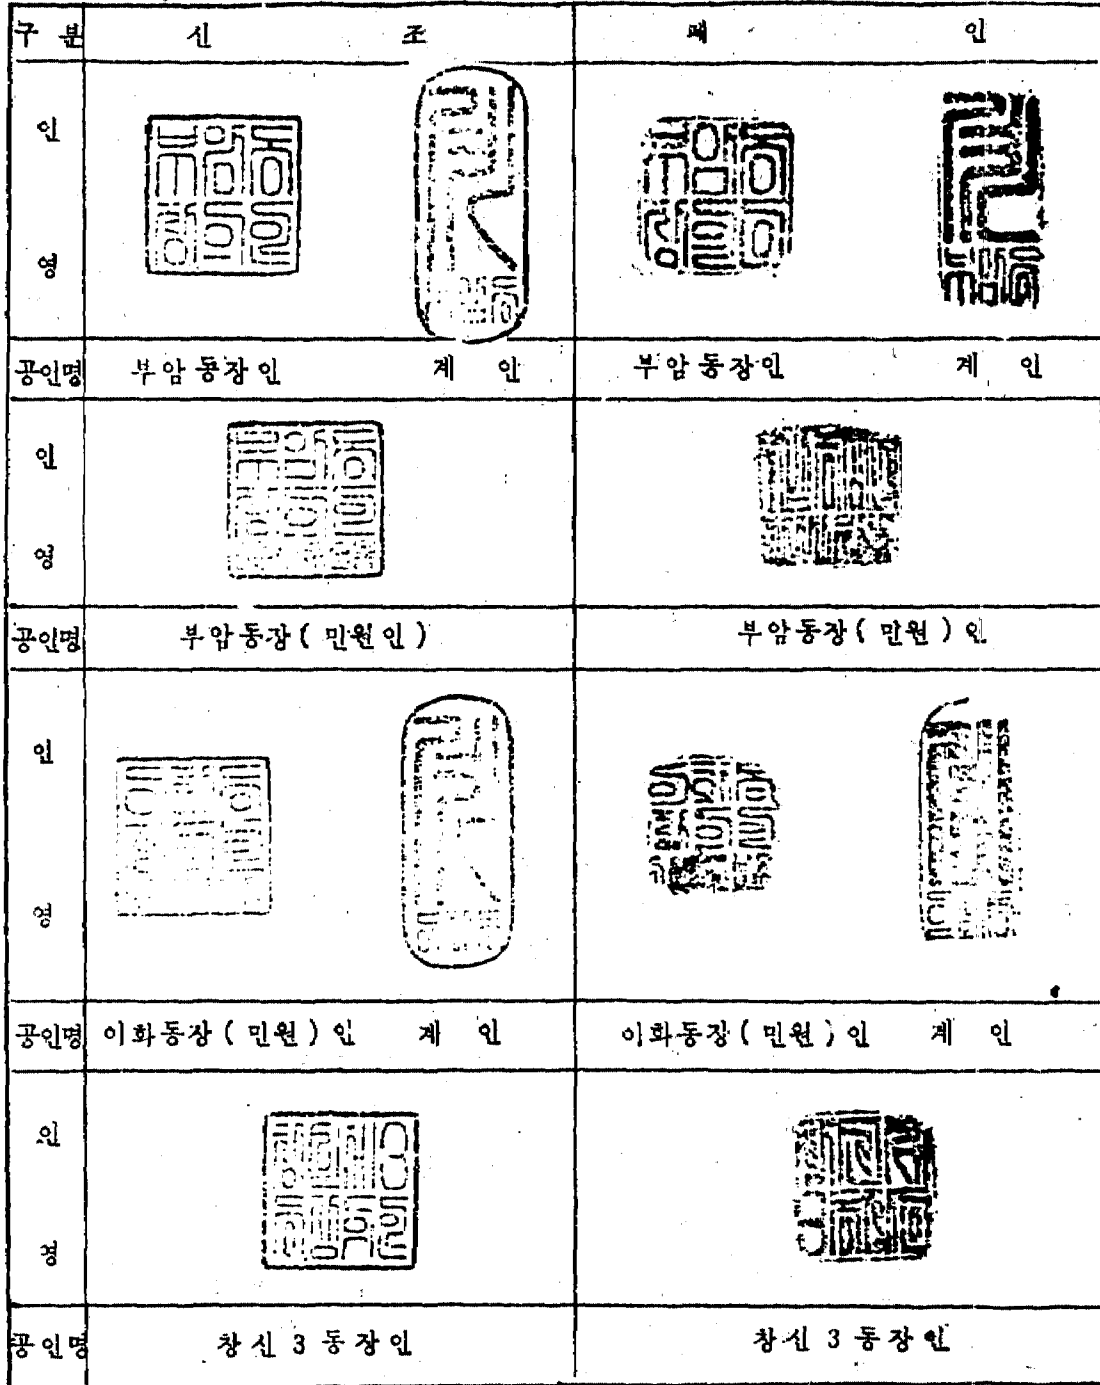 구 분 신 조 폐 인
인
영
공인명 부암동장인 계 인 부암동장인 계 인
인
영
공인명 부암동장( 민원인 ) 부암동장( 민원 ) 인
인
영
공인명 이화동장 ( 민원 ) 인 계 인 이화동장 ( 민원 ) 인 계 인
인
영
공인명 창신 3 동장인 창신 3 동장인